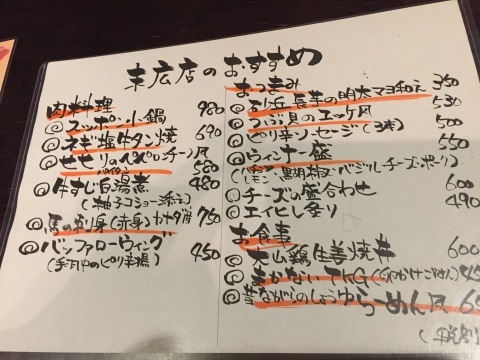 末広店のおすすめ
肉料理
◎スッポンート鍋 980
◎ネギ塩牛タン焼 690
◎せせりのペペロンチーノ風 580
◎牛すじ白湯煮 480
パイタン
(柚子コショー添え)
◎馬の刺身(赤身)カナダ産 750
◎バッファローウィング 450
(手羽中のピリ辛揚)
おつまみ
◎砂丘長芋の明太マヨ和え 350
◎つぶ貝のエスカルゴ風 530
◎ピリ辛ソーセージ(3本) 500
◎ウィンナー盛 550
レモン・黒胡椒・バジル・チーズ・ポーク)
◎チーズの盛合わせ 600
◎エイヒレ炙り 490
お食事
◎大山鶏生姜焼丼 600
◎まかないTKG(卵かけごはん) 45
◎昔ながらのしょうゆらーめん風 6
(税別